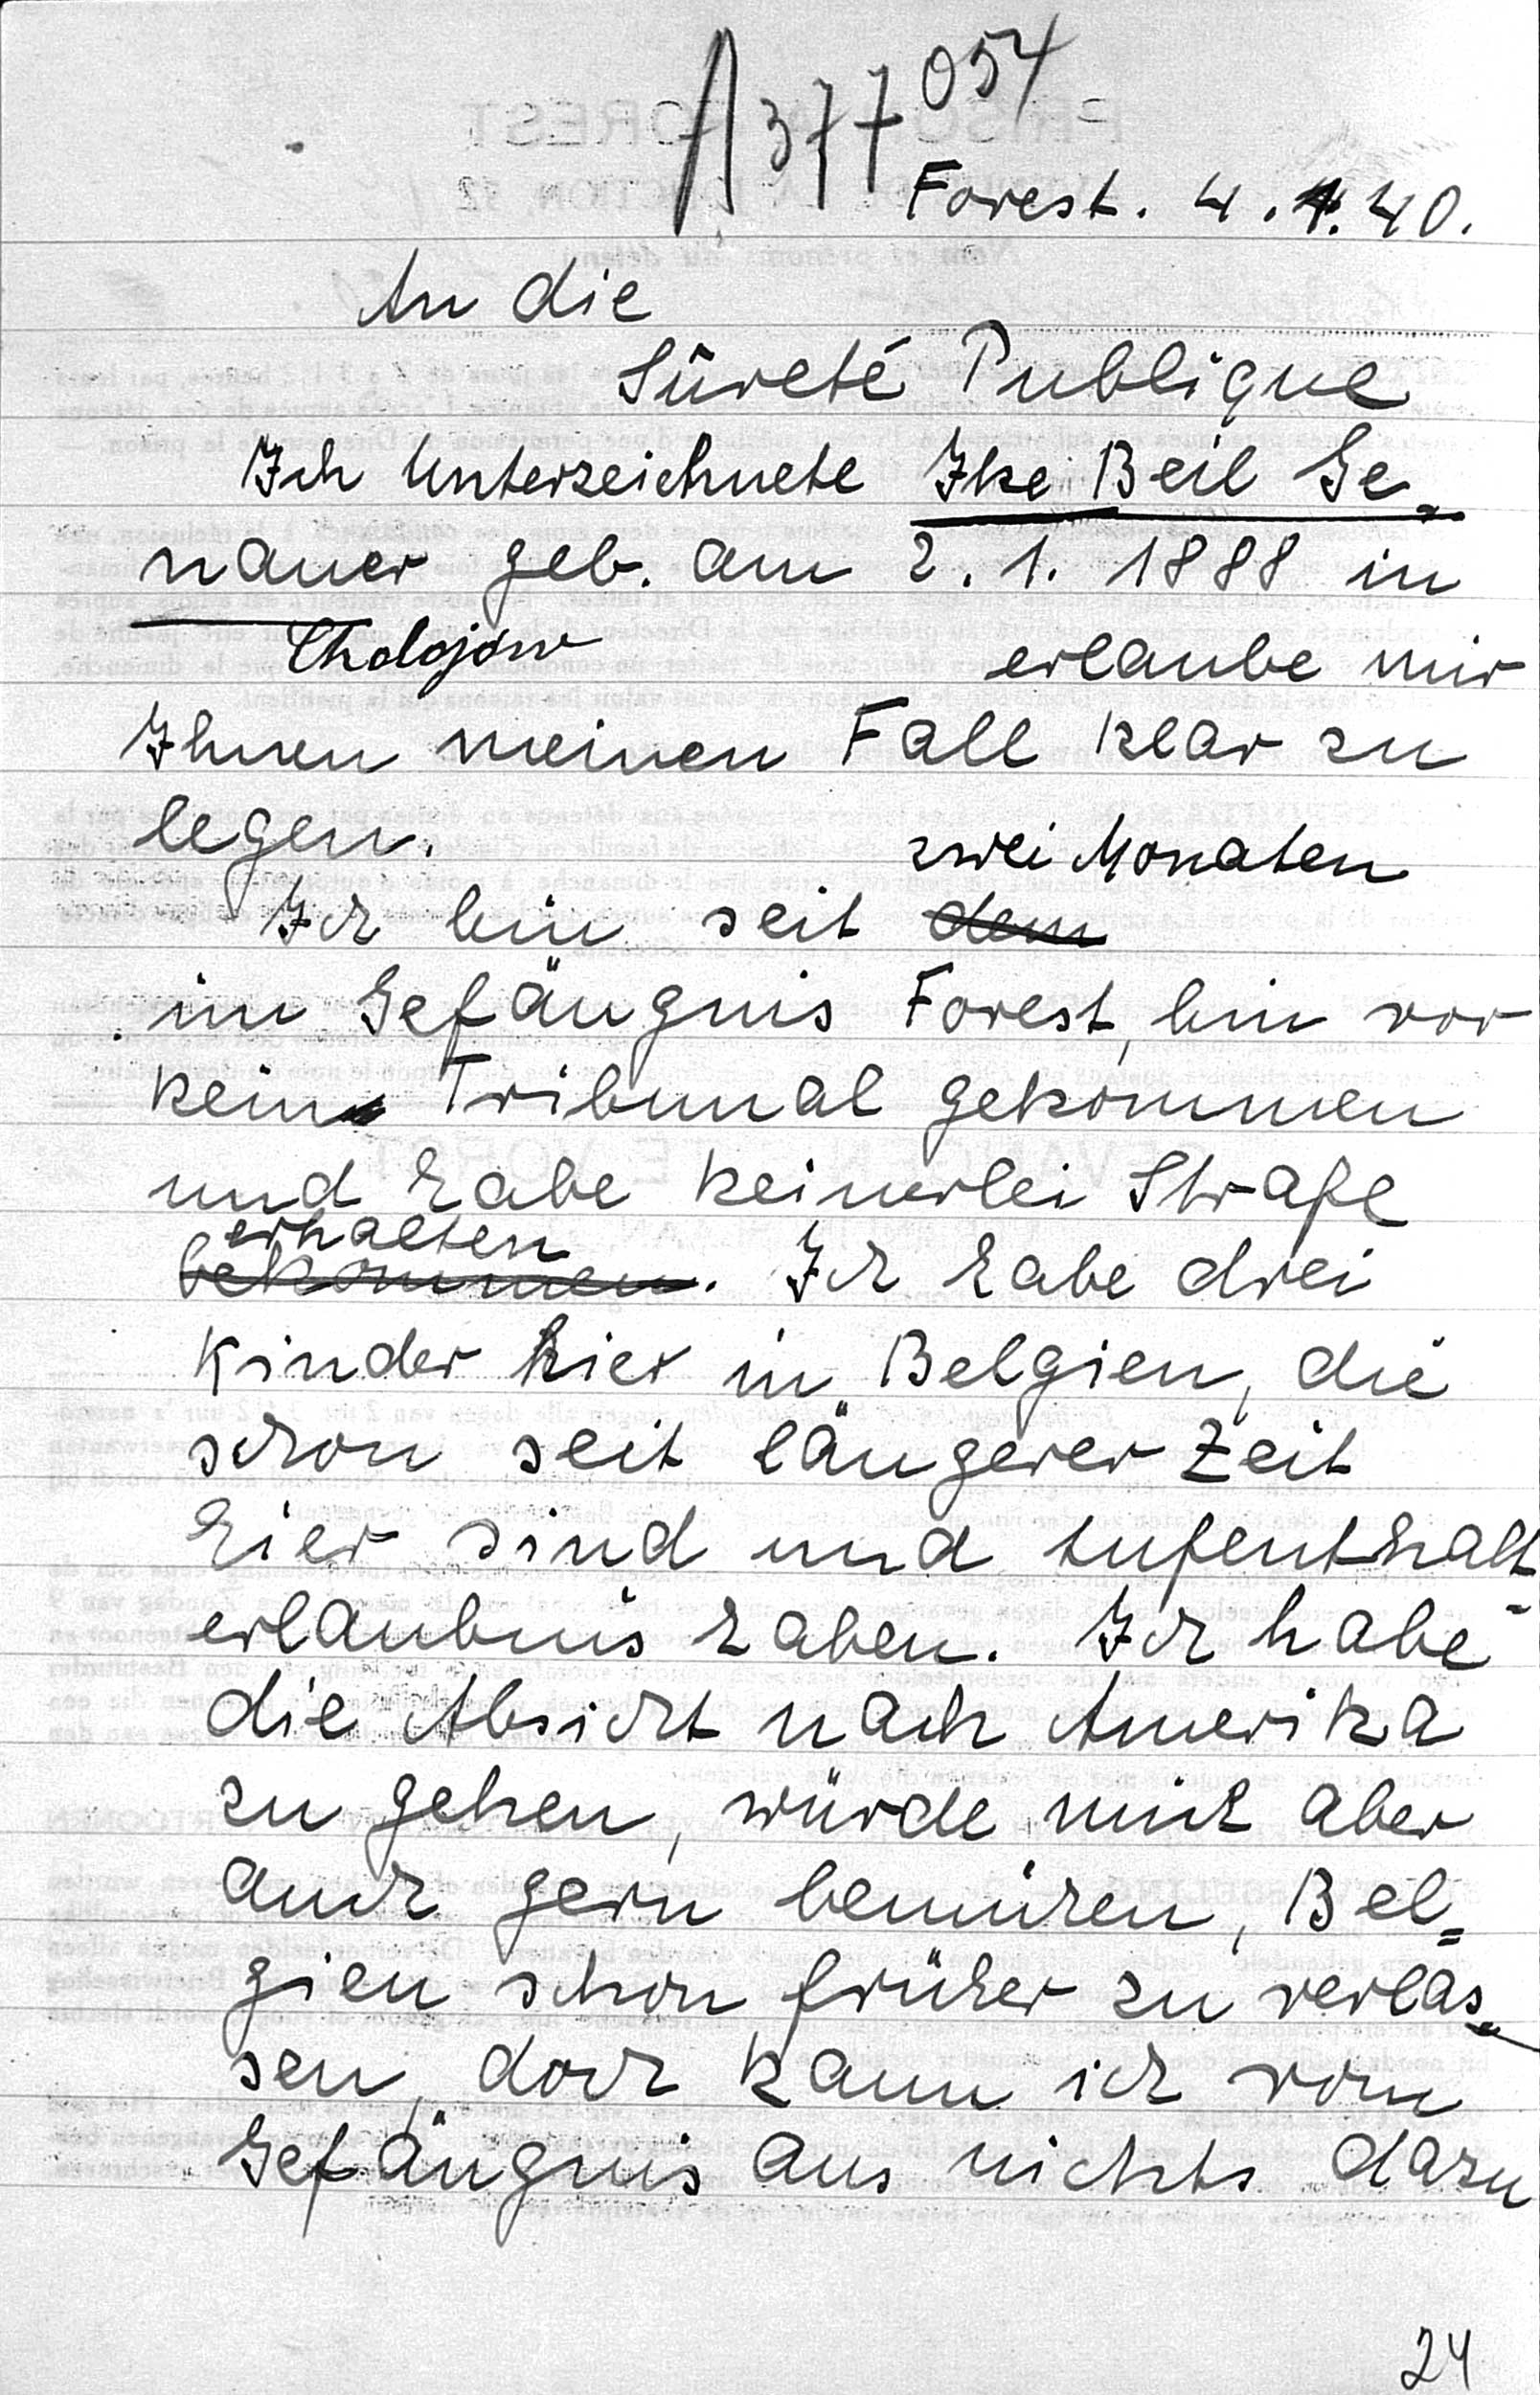 A377054
Forest. 4.4.40.
An die
Sûreté Publique
Ich Unterzeichnete Ike Beil Ge-
nauer geb. am 2.1.1888 in
Cholojow erlaube mir
Ihnen meinen Fall klar zu
legen.
zwei Monaten
Ich bin seit dem
im Gefängnis Forest, bin vor
kein Tribunal gekommen
und habe keinerlei Strafe
erhalten
bekommen. Ich habe drei
Kinder hier in Belgien, die
schon seit längerer Zeit
hier sind und Aufenthalt-
erlaubnis haben. Ich habe
die Absicht nach Amerika
zu gehen, würde mich aber
auch gern bemühen, Bel=
gien schon früher zu verlas-
sen, doch kann ich vom
Gefängnis aus nichts dazu
24